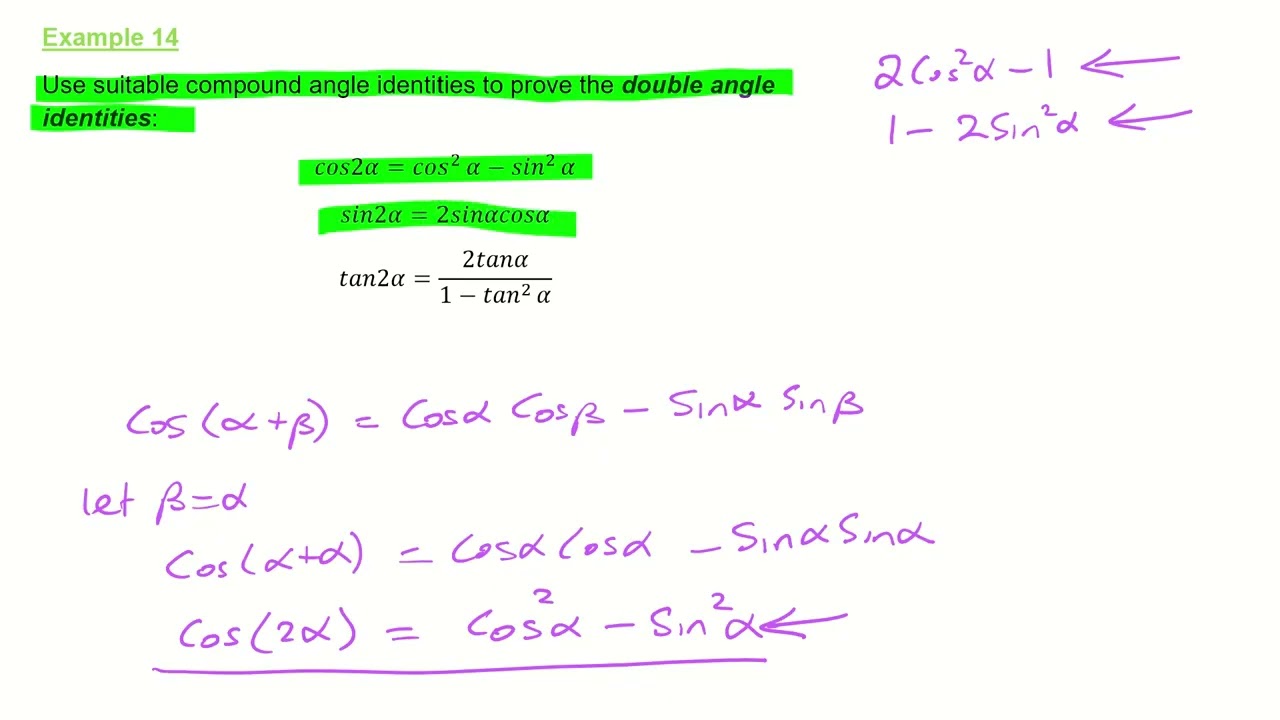 Example 14
Use suitable compound angle identities to prove the double angle
identities:
cos2α = cos² α − sin² α
sin2α = 2sinαcosα
tan2α = 2tanα / 1 − tan² α
2Cos²α − 1 ←
1 − 2Sin²α ←
Cos(α+β) = Cosα Cosβ − Sinα Sinβ
let β=α
Cos(α+α) = Cosα Cosα − Sinα Sinα
Cos(2α) = Cos²α − Sin²α ←